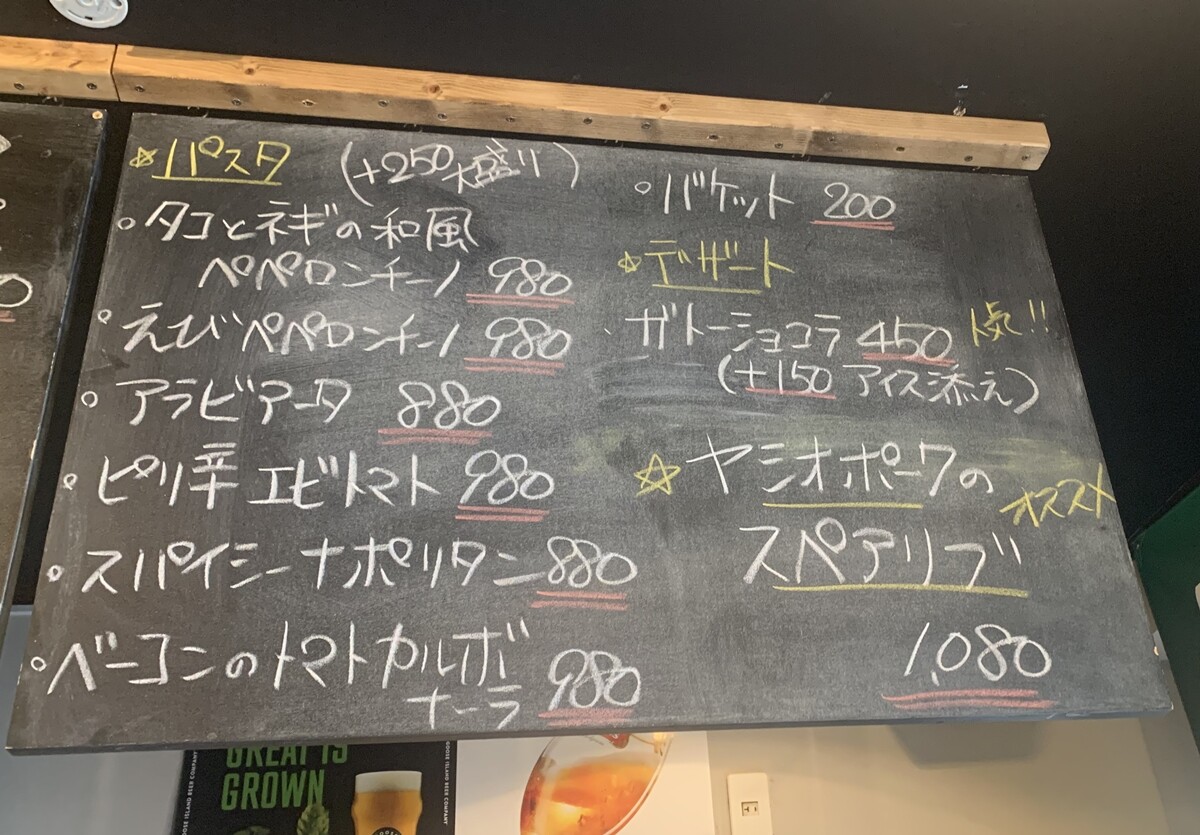 ☆パスタ (+250 大盛り)
○タコとネギの和風
ペペロンチーノ 980
○えびペペロンチーノ 980
○アラビアータ 880
○ピリ辛エビトマト 980
○スパイシーナポリタン 880
○ベーコンのトマトカルボ
ナーラ 980
○バケット 200
☆デザート
・ガトーショコラ 450 人気!!
(+150 アイス添え)
☆ヤシオポークの
オススメ
スペアリブ
1,080
GREAT IS
GROWN
GOOSE ISLAND BEER COMPANY
GOOSE ISLAND BEER COMPANY